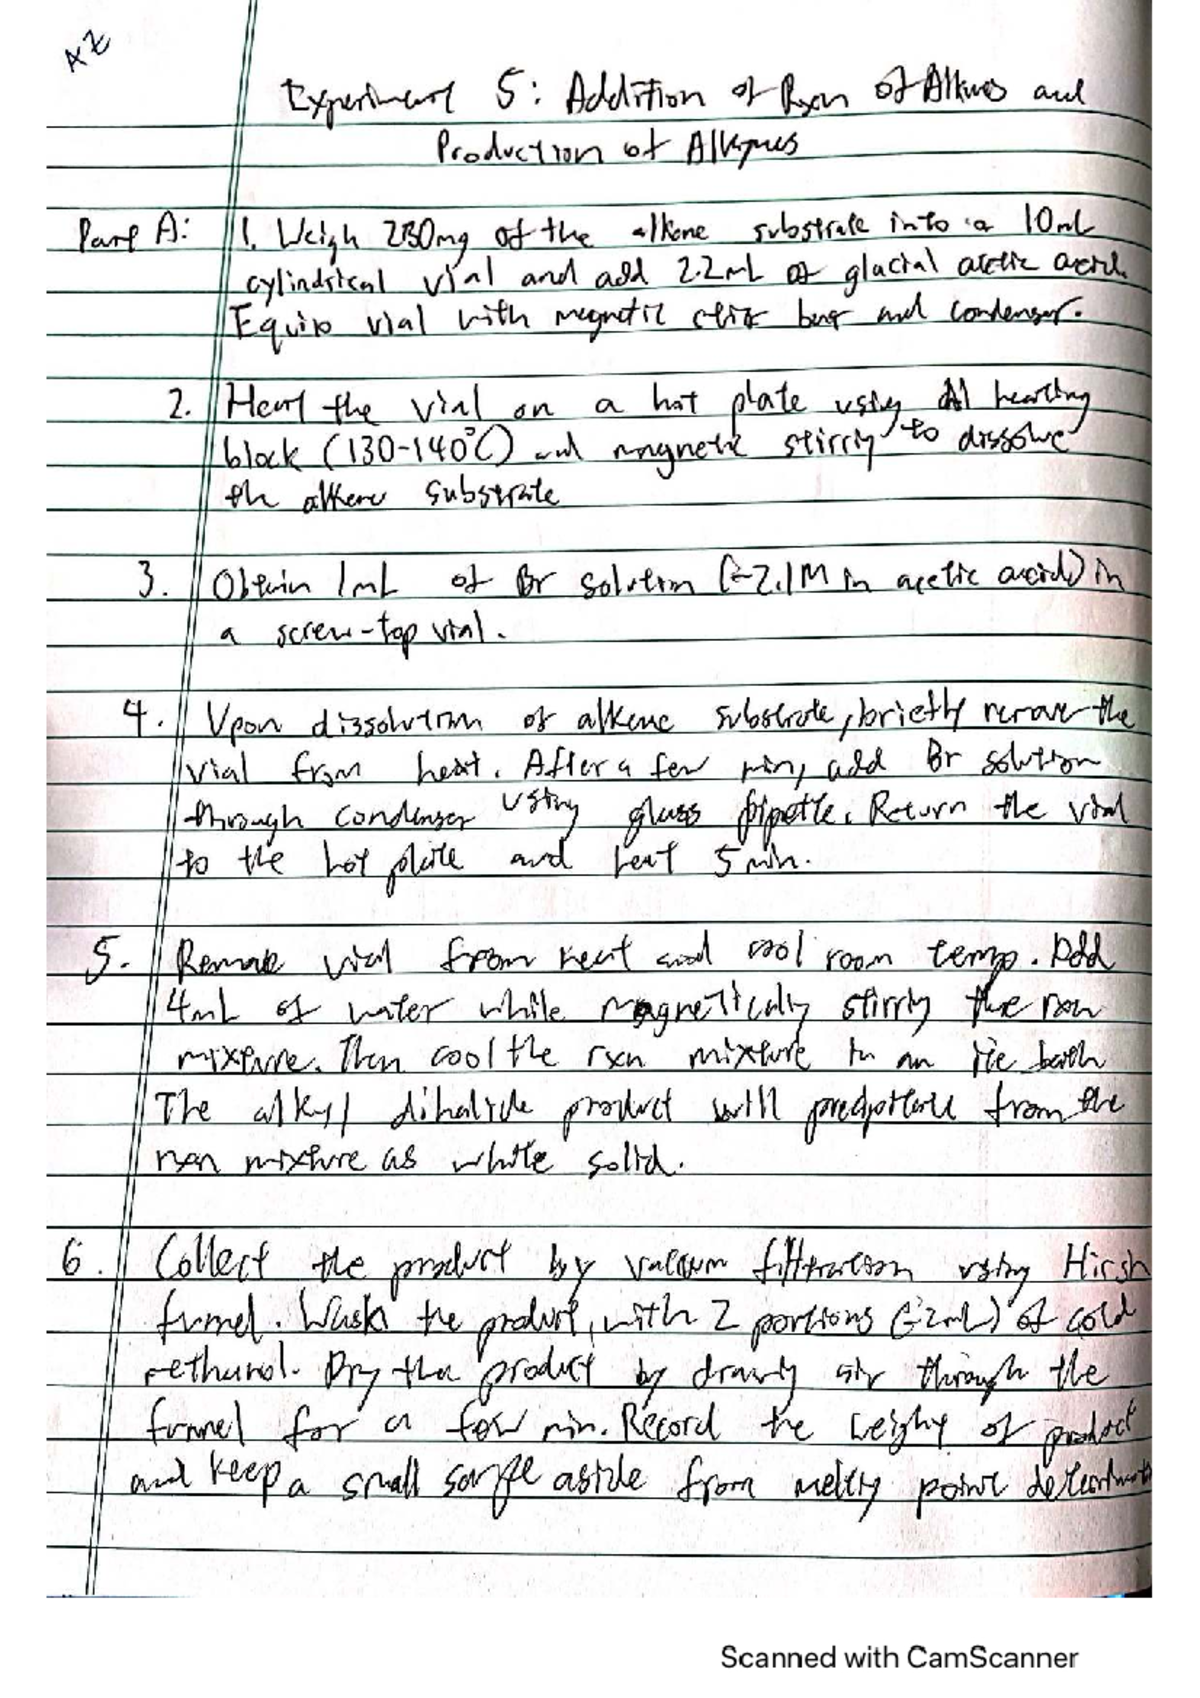 AZ
Experiment 5: Addition of Rxn of Alkenes and
Production of Alkynes
Part A: 1. Weigh 250mg of the alkene substrate into a 10mL
cylindrical vial and add 2.2mL of glacial acetic acid.
Equip vial with magnetic stir bar and condenser.
2. Heat the vial on a hot plate using Al heating
block (130-140°C) and magnetic stirring to dissolve
the alkene substrate
3. Obtain 1mL of Br solution (~2.1M in acetic acid) in
a screw-top vial.
4. Upon dissolution of alkene substrate, briefly remove the
vial from heat. After a few min, add Br solution
through condenser using glass pipette. Return the vial
to the hot plate and heat 5 min.
5. Remove vial from heat and cool room temp. Add
4mL of water while magnetically stirring the rxn
mixture. Then cool the rxn mixture in an ice bath
The alkyl dihalide product will precipitate from the
rxn mixture as white solid.
6. Collect the product by vacuum filtration using Hirsh
funnel. Wash the product, with 2 portions (~2mL) of cold
ethanol. Dry the product by drawing air through the
funnel for a few min. Record the weight of product
and keep a small sample aside from melting point
Scanned with CamScanner